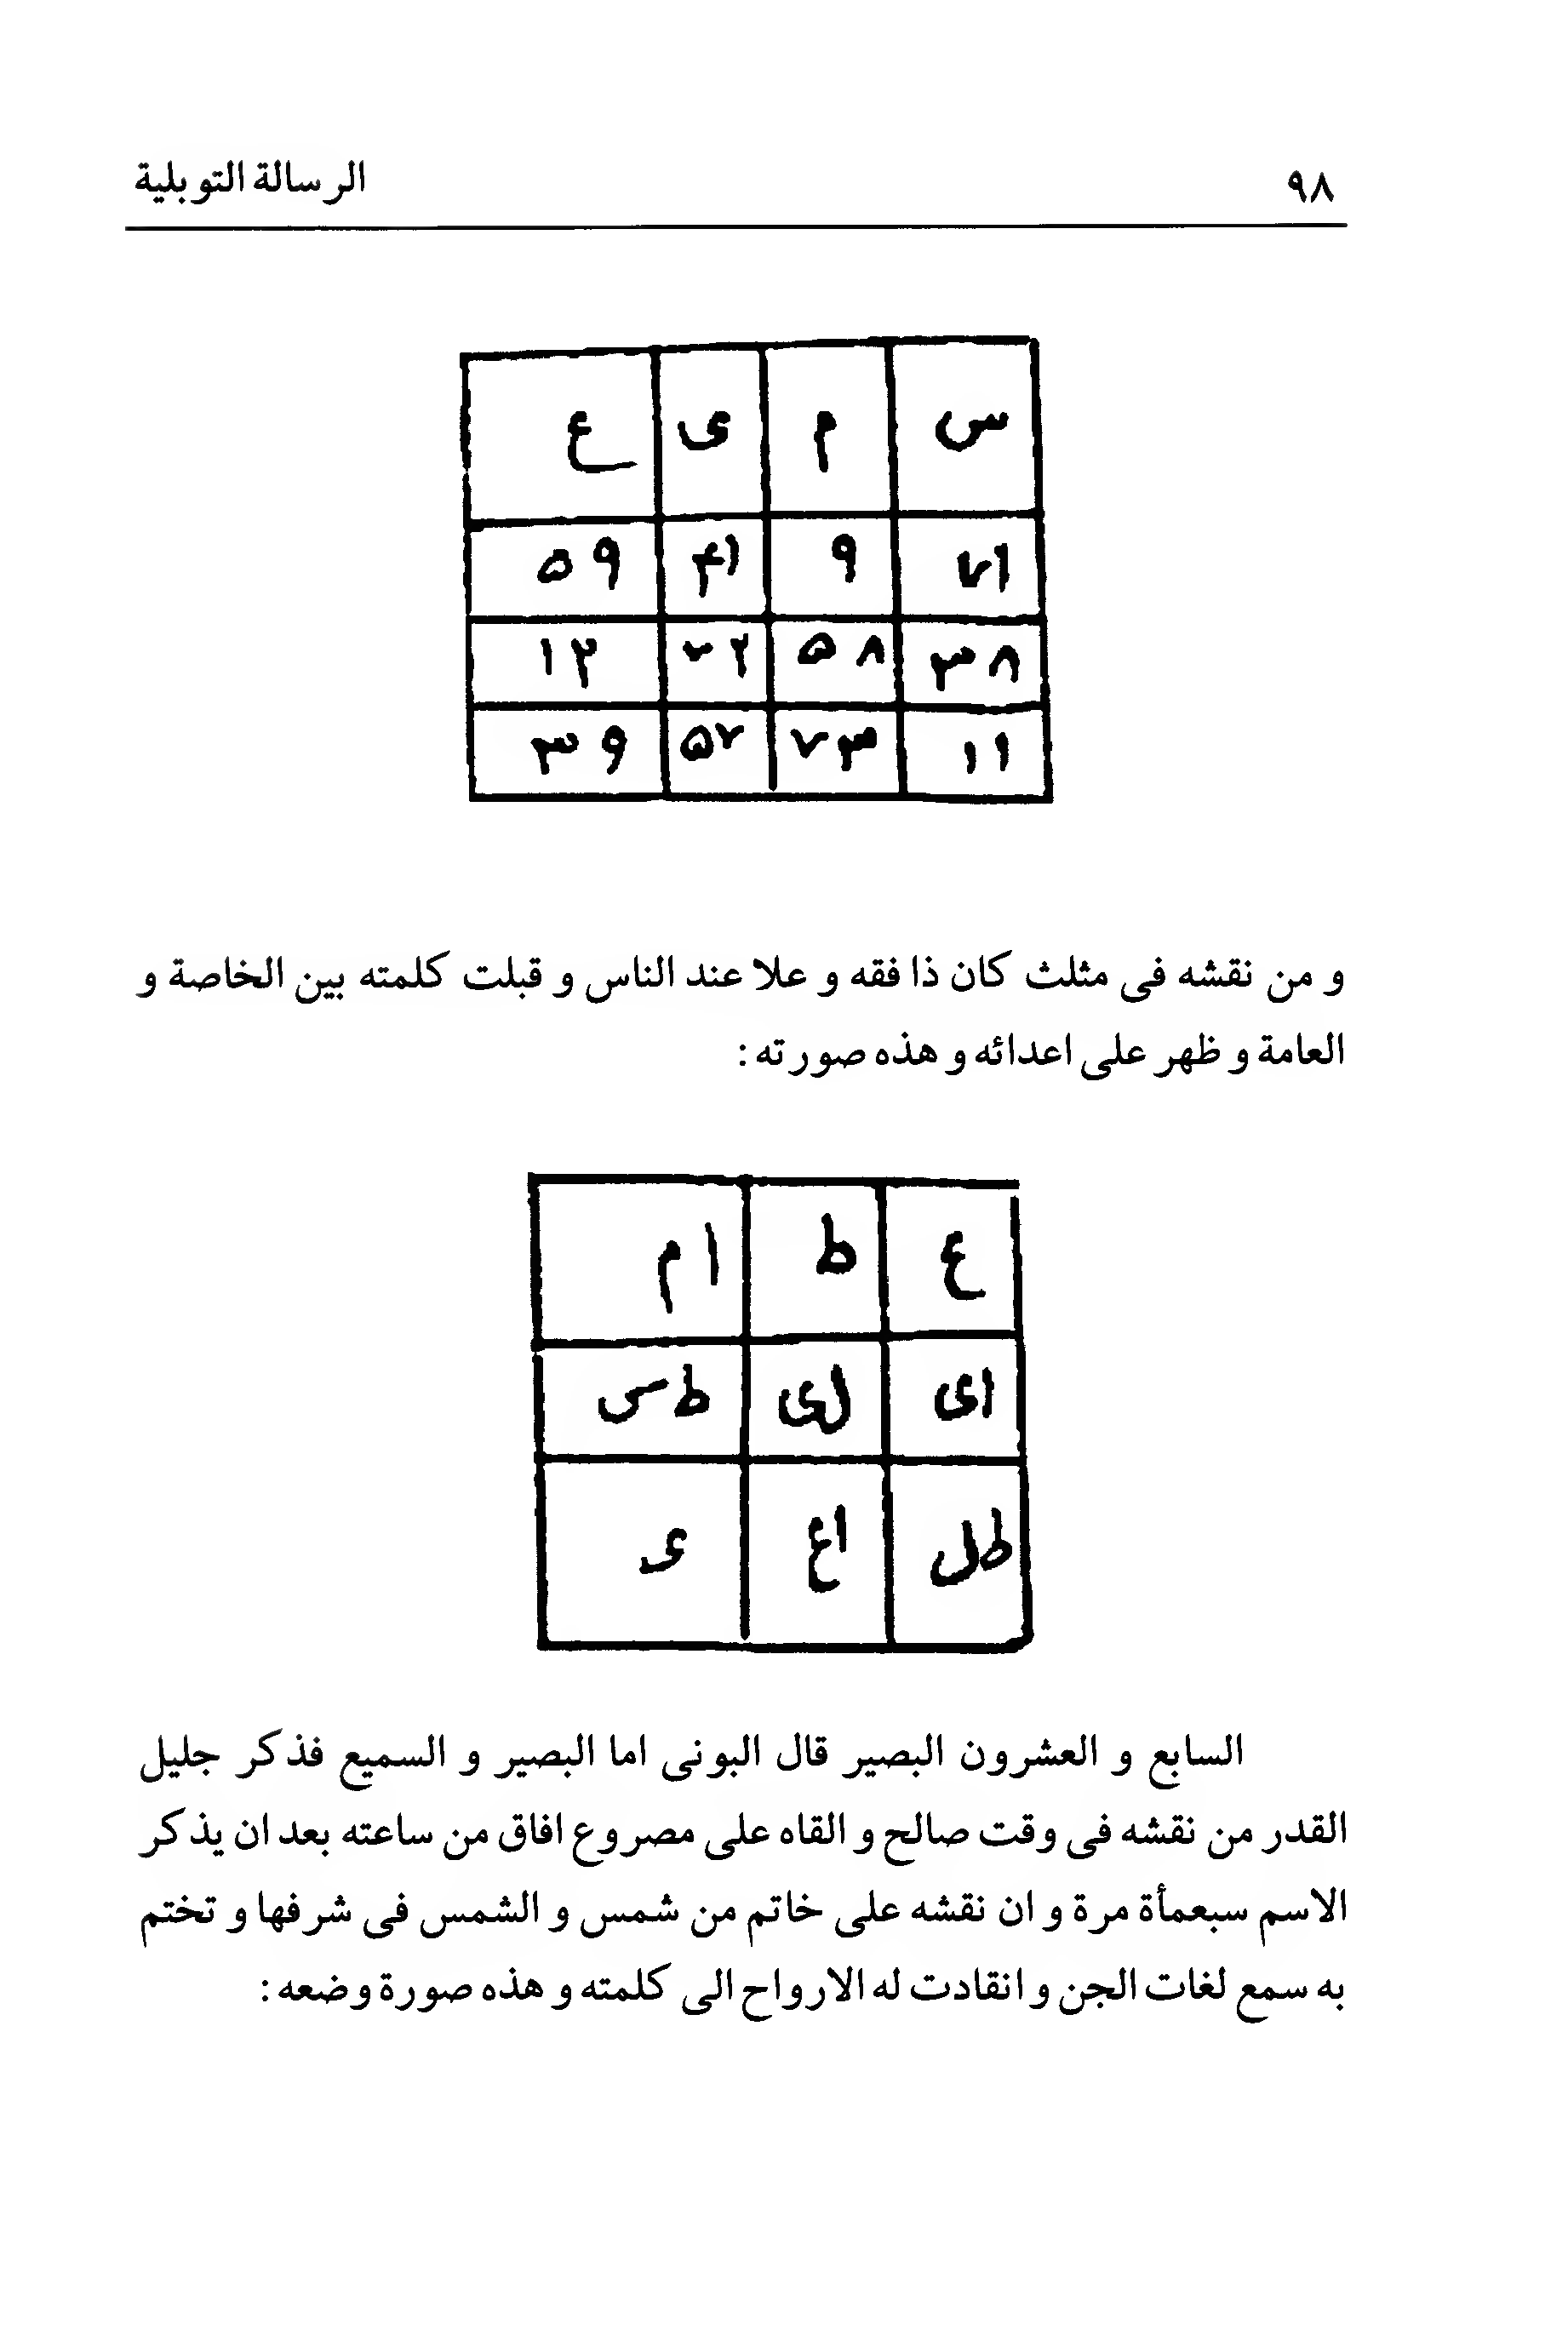 ٩٨ الرسالة التوبلية
س م ى ع
٧١ ٩ ۴١ ۵٩
٣٨ ۵٨ ٧٢ ١٢
١١ ٧٣ ۵٧ ٣٩
و من نقشه فى مثلث كان ذا فقه و علا عند الناس و قبلت كلمته بين الخاصة و
العامة و ظهر على اعدائه و هذه صورته :
ع ط ام
اى لى طس
طل اع ى
السابع و العشرون البصير قال البونى اما البصير و السميع فذكر جليل
القدر من نقشه فى وقت صالح و القاه على مصروع افاق من ساعته بعد ان يذكر
الاسم سبعمأة مرة و ان نقشه على خاتم من شمس و الشمس فى شرفها و تختم
به سمع لغات الجن و انقادت له الارواح الى كلمته و هذه صورة وضعه :